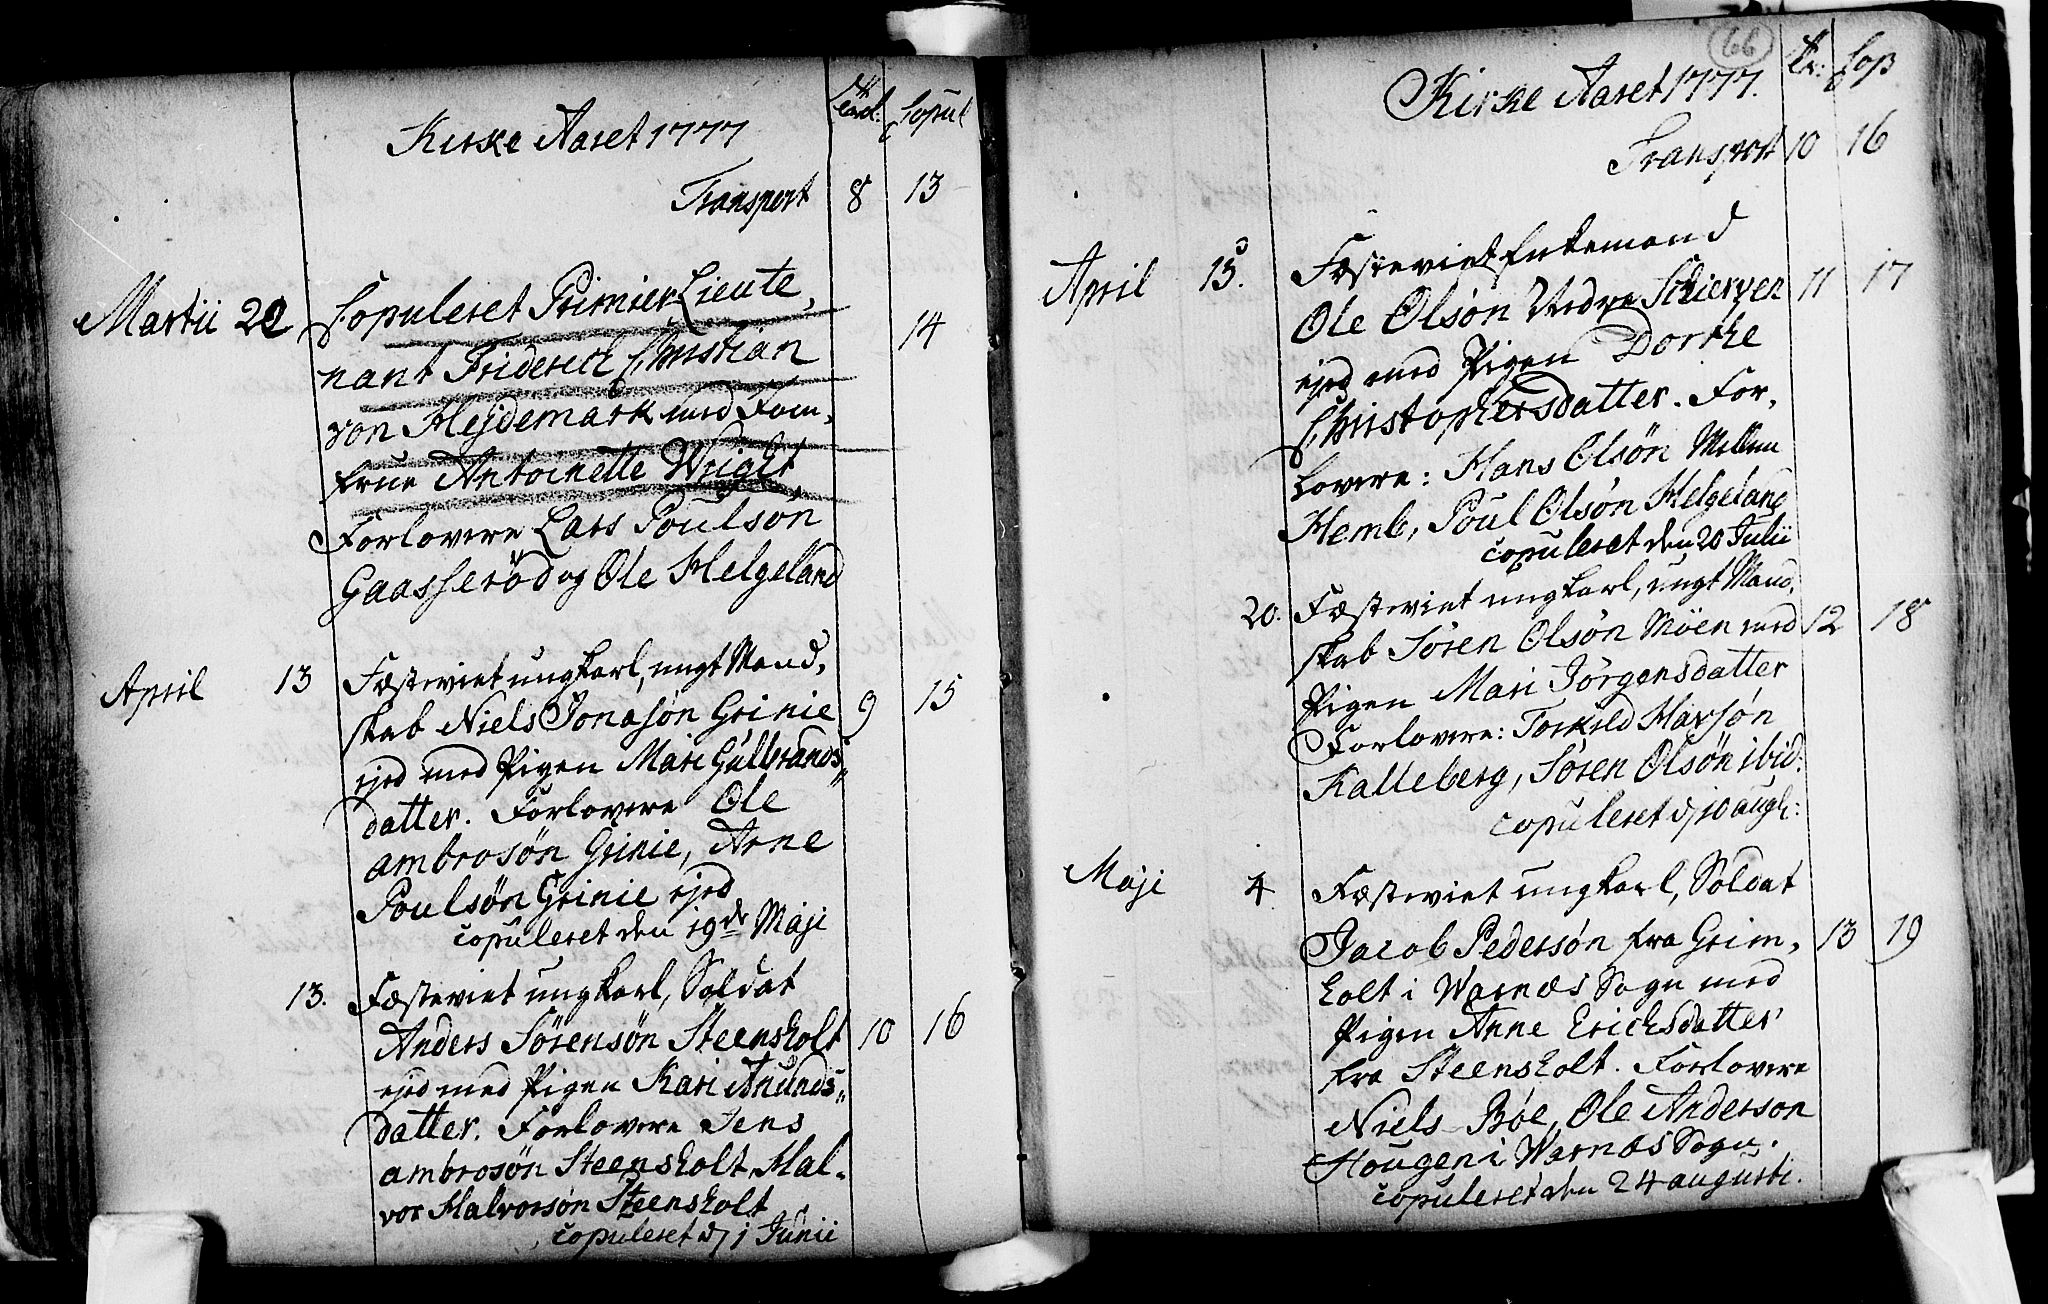 Kirke Aaret 1777
Trol. Copul
Transport 8 13
Martii 22 Copuleret Primier Lieute,
nant Friderich Christian 14
von Hejdemark med Jom,
frue Antoinette Wright,
Forlovere Lars Poulson
Gaasserød og Ole Helgeland
April 13 Fæsteviet ungkarl, ungt Mand,
skab Niels Jonasøn Grinie 9 15
ejed med Pigen Mari Gulbrands„
datter. Forlovere Ole
ambrosøn Grinie, Arne
Poulsøn Grinie ejed
copuleret den 19de Maji
13. Fæsteviet ungkarl, Soldat
Anders Sørensøn Steensholt 10 16
ejed med Pigen Kari Anunds„
datter. Forlovere Jens
ambrosøn Steensholt, Hal-
vor Halvorsøn Steensholt
copuleret d. 1 Junii
66
Kirke Aaret 1777.
Tr: Cop
Transport 10 16
April 13. Fæsteviet Enkemand
Ole Olsøn Nedre Schierven 11 17
ejed med Pigen Dorthe
Christophersdatter. For,
lovere: Hans Olsøn Mellem
Hemb, Poul Olsøn Helgeland
copuleret den 20 Julii
20. Fæsteviet ungkarl, ungt Mand,
skab Søren Olsøn Møen med 12 18
Pigen Mari Jørgensdatter
Forlovere: Torkild Havsøn
Kalleberg, Søren Olsøn ibid:
copuleret d. 10 aug:
Maji 4 Fæsteviet ungkarl, Soldat
Jacob Pedersøn fra Grim, 13 19
holt i Warnæs Sogn med
Pigen Anne Erichsdatter
fra Steensholt. Forlovere
Niels Bøe, Ole Anderson
Hougen i Warnæs Sogn.
copuleret den 24 augusti.